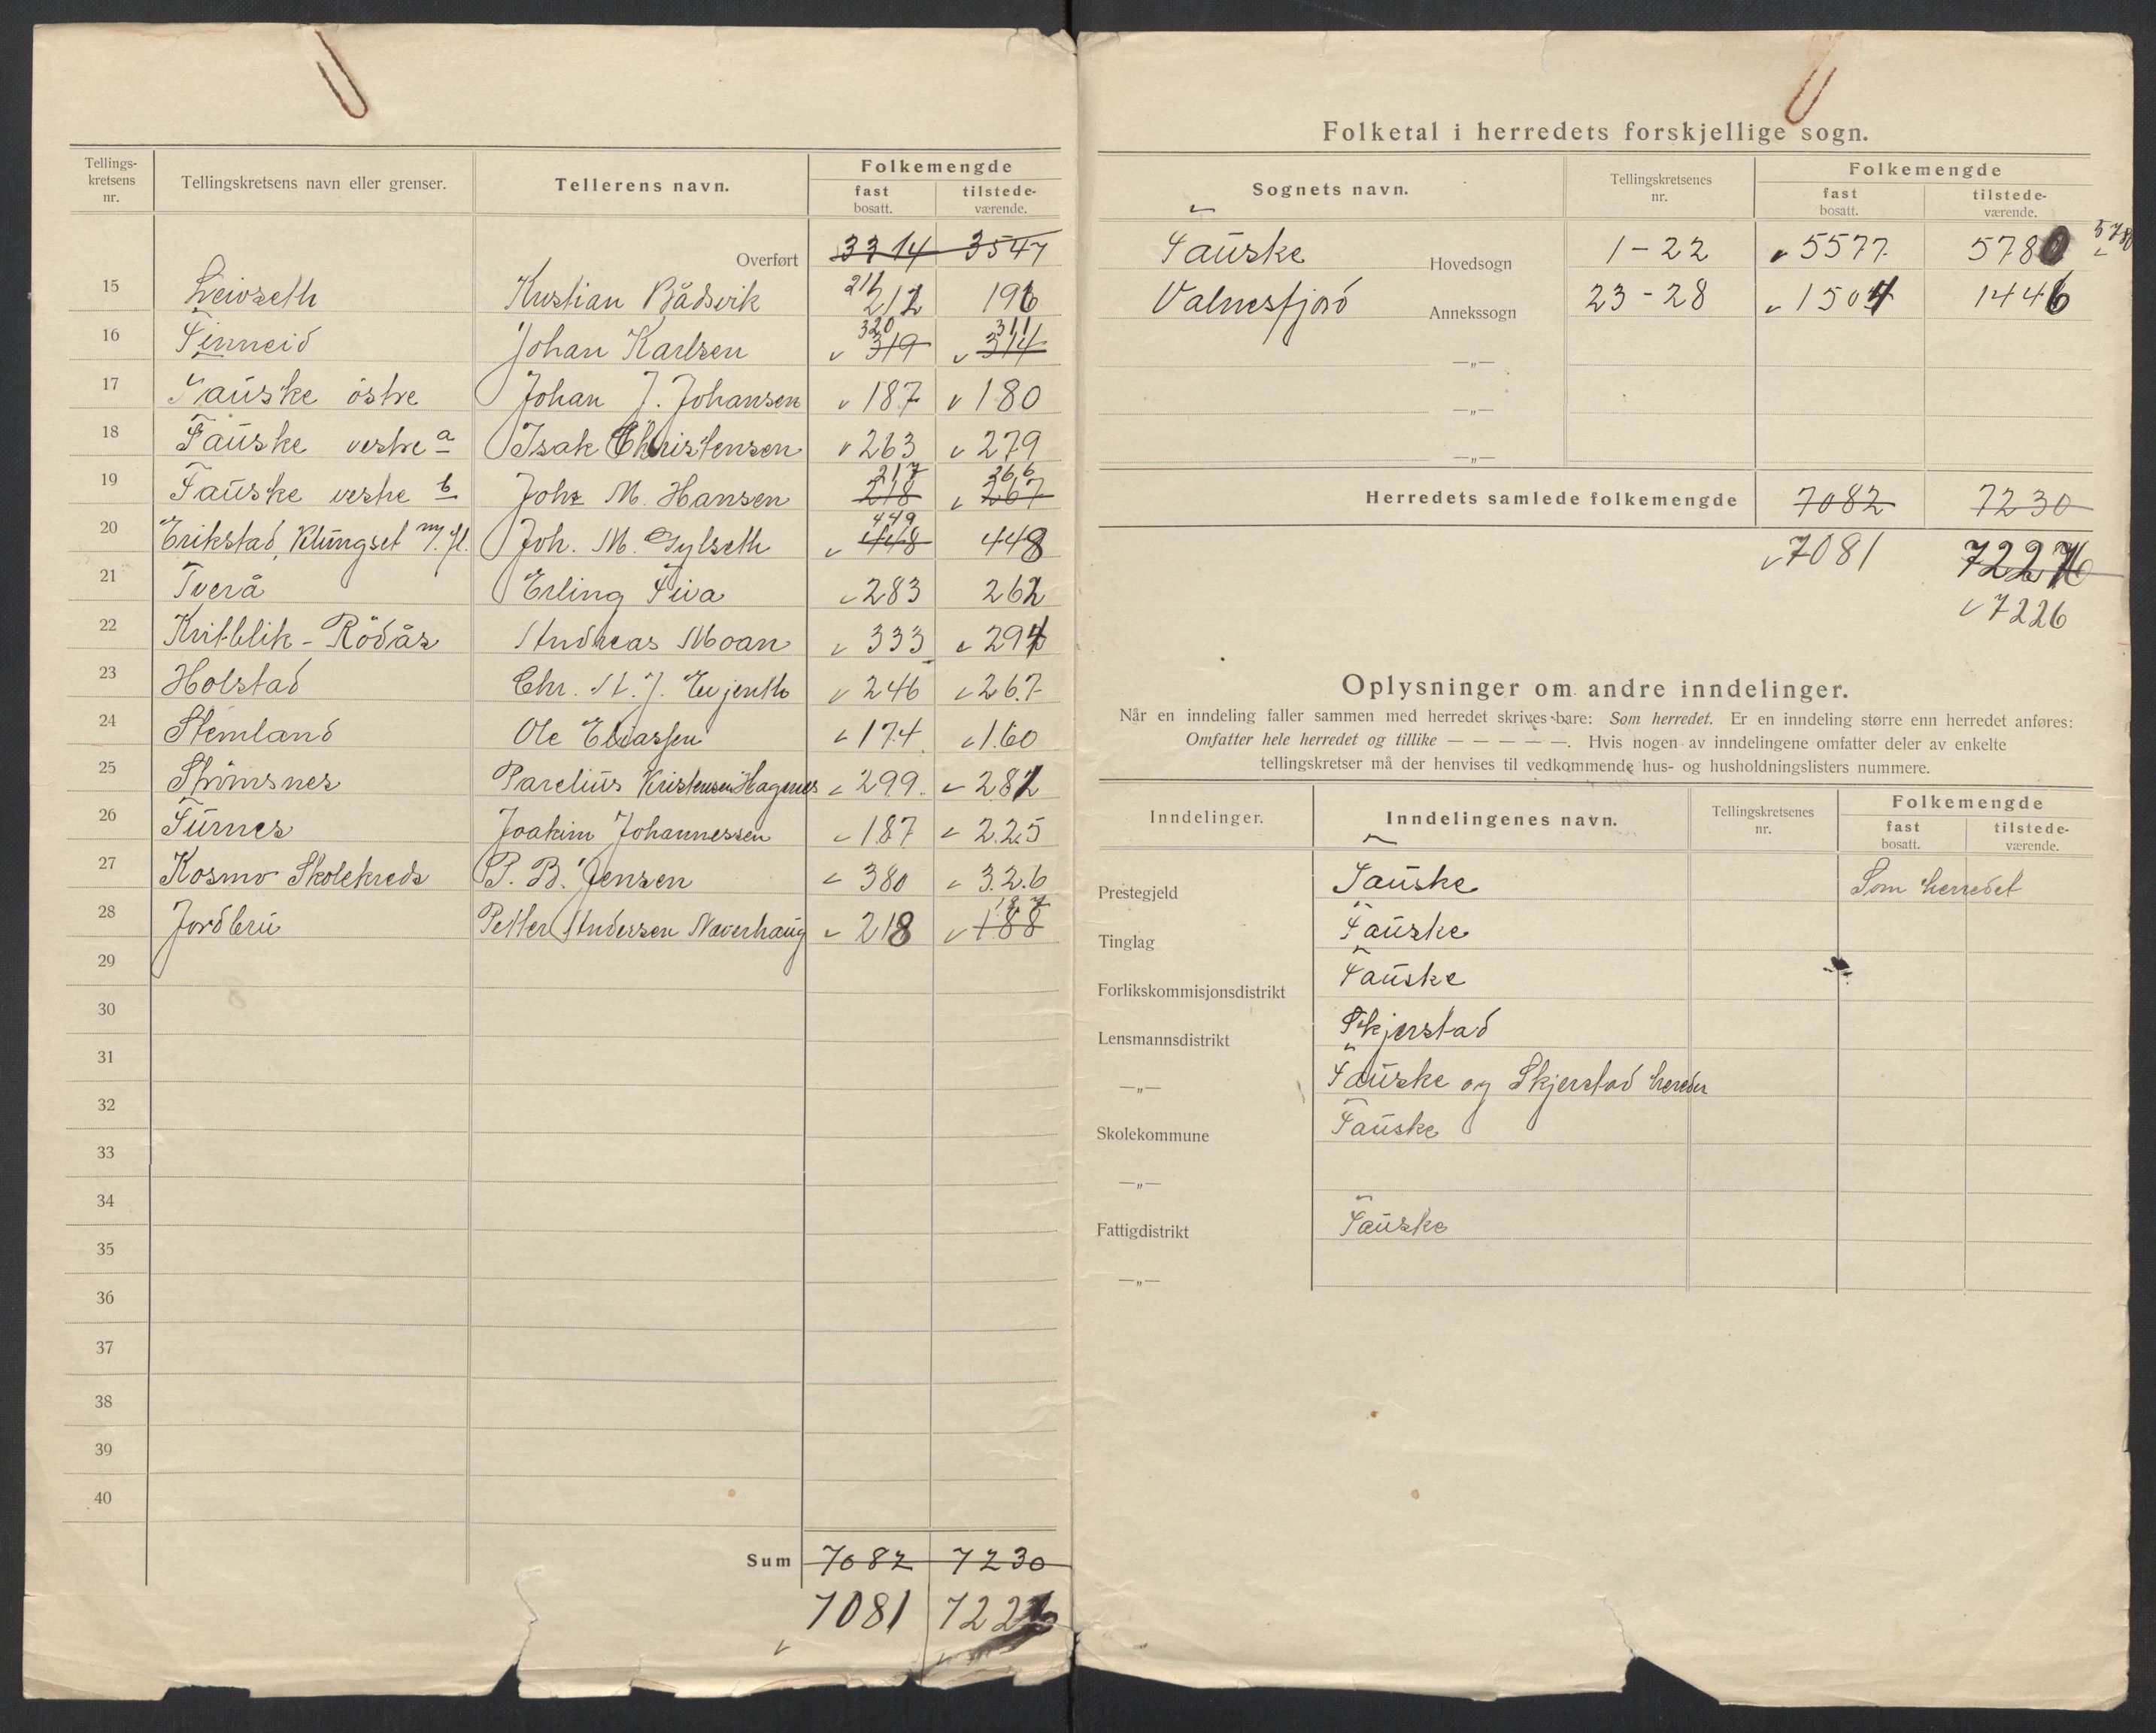 Tellings-
kretsens
nr.
Tellingskretsens navn eller grenser.
Tellerens navn.
Folkemengde
fast
bosatt.
tilstede-
værende.
Overført 3314 3547
15 Leivseth Kristian Bådsvik 211 212 196
16 Finneid Johan Karlsen 320 319 311 314
17 Fauske östre Johan J. Johansen 187 180
18 Fauske vestre a Isak Christensen 263 279
19 Fauske vestre b Joh. M. Hansen 217 218 266 267
20 Erikstad, Klungset m. fl. Joh. M. Gylseth 449 448 448
21 Tverå Erling Siva 283 262
22 Kvitblik - Rödås Andreas Moan 333 294
23 Holstad Chr. A. J. 246 267
24 Stemland Ole Eliassen 174 160
25 Strömsnes Parelius Kristensen Hagenes 299 281
26 Furnes Joakim Johannessen 187 225
27 Kosmo Skolekreds P. B. Jensen 380 326
28 Jordbru Petter Andersen Naverhaug 218 187 188
29
30
31
32
33
34
35
36
37
38
39
40
Sum 7082 7230
7081 7226
Folketal i herredets forskjellige sogn.
Sognets navn.
Tellingskretsenes
nr.
Folkemengde
fast
bosatt.
tilstede-
værende.
Fauske Hovedsogn 1-22 5577 5780 5780
Valnesfjord Annekssogn 23-28 1504 1446
—„—
—„—
—„—
Herredets samlede folkemengde 7082 7230
7081 7226
7226
Oplysninger om andre inndelinger.
Når en inndeling faller sammen med herredet skrives bare: Som herredet. Er en inndeling større enn herredet anføres:
Omfatter hele herredet og tillike — — — — —. Hvis nogen av inndelingene omfatter deler av enkelte
tellingskretser må der henvises til vedkommende hus- og husholdningslisters nummere.
Inndelinger.
Inndelingenes navn.
Tellingskretsenes
nr.
Folkemengde
fast
bosatt.
tilstede-
værende.
Prestegjeld Fauske Som herredet
Tinglag Fauske
Forlikskommisjonsdistrikt Fauske
Lensmannsdistrikt Skjerstad
—„— Fauske og Skjerstad hereder
Skolekommune Fauske
—„—
Fattigdistrikt Fauske
—„—